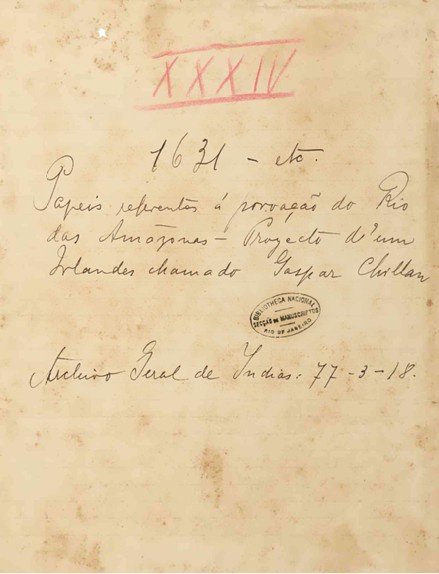 XXXIV
1631 - etc.
Papeis referentes á povoação do Rio
das Amazonas - Proyecto d'um
Irlandes chamado Gaspar Chillan
BIBLIOTHECA NACIONAL
SECÇÃO DE MANUSCRIPTOS
RIO DE JANEIRO
Archivo Geral de Indias: 77-3-18.